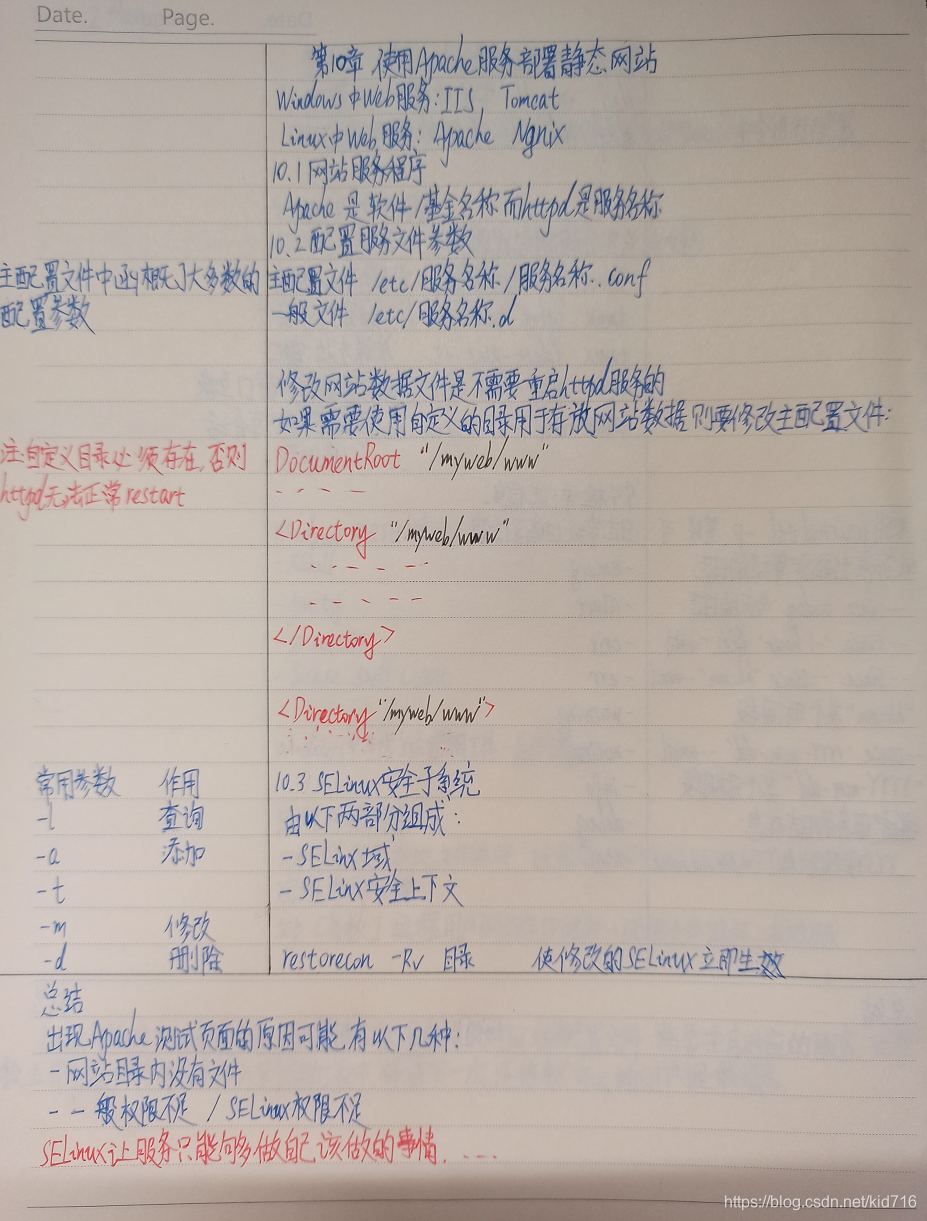 Date. Page.
第10章 使用Apache服务部署静态网站
Windows中Web服务:IIS, Tomcat
Linux中Web服务: Apache Ngnix
10.1 网站服务程序
Apache 是 软件/基金名称 而httpd是服务名称
10.2 配置服务文件参数
主配置文件 /etc/服务名称/服务名称.conf
一般文件 /etc/服务名称.d
主配置文件中 大多数的
配置参数
修改网站数据文件是不需要重启httpd服务的
如果需要使用自定义的目录用于存放网站数据则要修改主配置文件:
注:自定义目录必须存在,否则
httpd无法正常restart
DocumentRoot "/myweb/www"
- - - -
<Directory "/myweb/www"
- - - - -
- - - - -
</Directory>
<Directory "/myweb/www">
常用参数 作用
-l 查询
-a 添加
-t
-m 修改
-d 删除
10.3 SELinux安全子系统
由以下两部分组成:
- SELinx域
- SELinx安全上下文
restorecon -Rv 目录 使修改的SELinux立即生效
总结
出现Apache测试页面的原因可能有以下几种:
- 网站目录内没有文件
- 一般权限不足 / SELinux权限不足
SELinux让服务只能够多做自己该做的事情. ....
https://blog.csdn.net/kid716